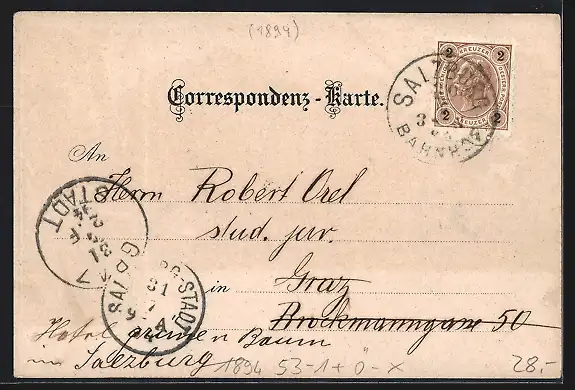 (1894)
2 KREUZER 2
2 KREUZER 2
SALZBURG
3
BAHNHOF
Correspondenz-Karte.
An
Herrn Robert Orel
stud. jur.
in Graz
Brockmanngasse 50
Hotel grünen Baum
in Salzburg
STADT
31
7
SALZBURG-STADT
31
7
94
1894 53-1+Ö-X
28.-